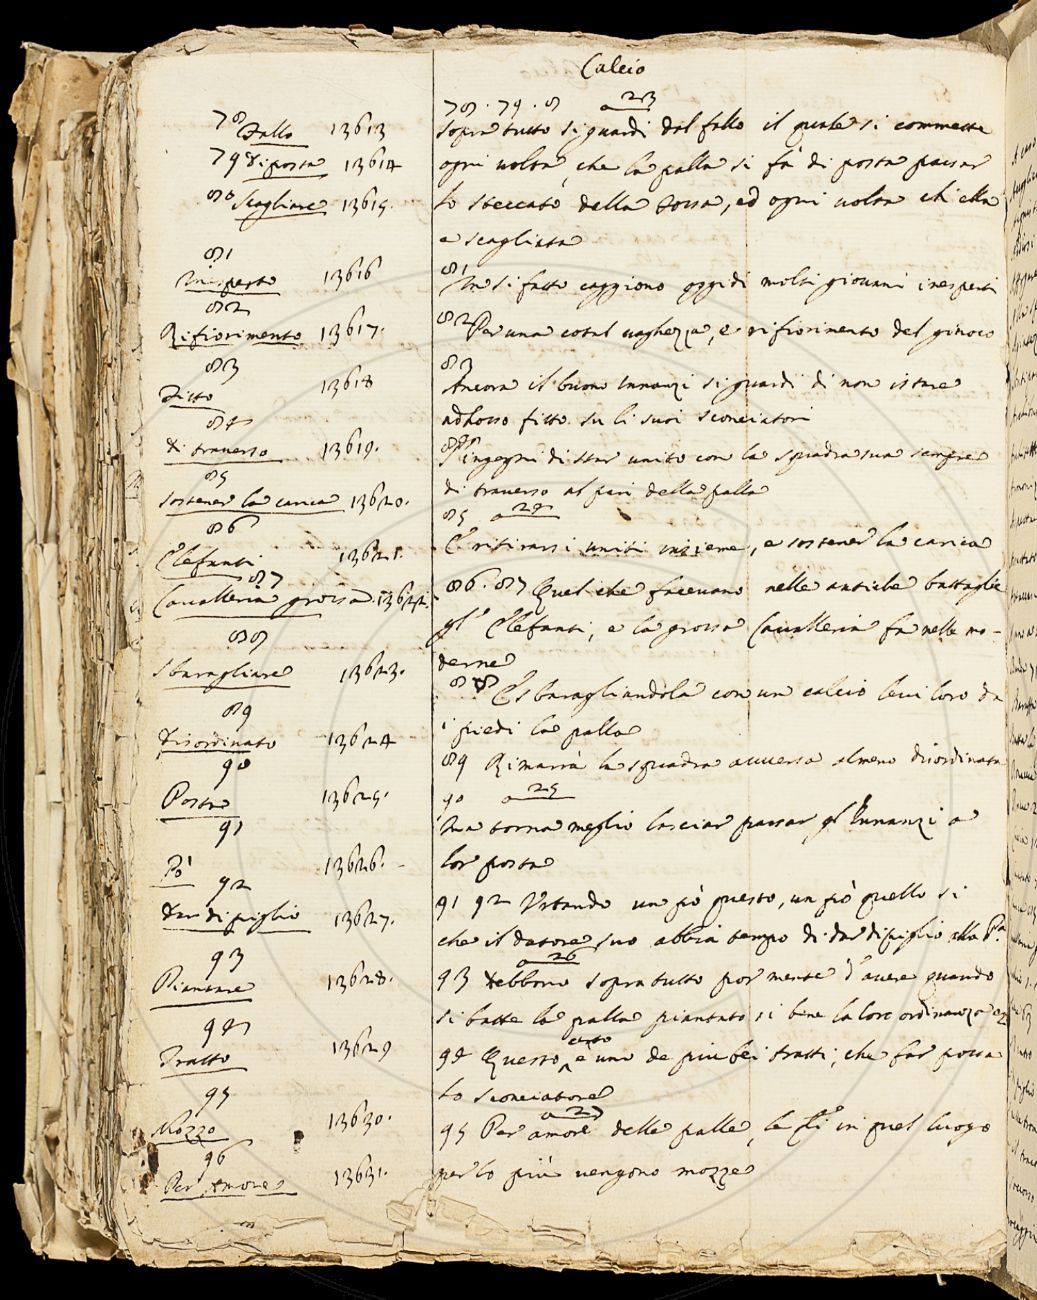 Calcio
78 Fallo 13613
79 di posta 13614
80 Scagliare 13615.
81
Inesperto 13616
82
Rifiorimento 13617.
83
Fitto 13618
84
di traverso 13619.
85
sostener la carica 13620.
86
Elefanti 13621.
87
Cavalleria grossa 13622.
88
Sbaragliare 13623.
89
Disordinato 13624
90
Posta 13625.
91
Pò 13626.
92
Dar di piglio 13627.
93
Piantare 13628.
94
Tratto 13629
95
Mozzo 13630.
96
Per Amore 13631.
78. 79. 8 a 23
sopra tutto si guardi dal fallo il quale si commette
ogni volta, che la palla si fà di posta passar
lo steccato della fossa, ed ogni volta ch'ella
e scagliata
81
In si fatto caggiono oggidi molti giovani inesperti
82 Per una cotal vaghezza, e rifiorimento del giuoco
83
Ancora il buono Innanzi si guardi di non istare
addosso fitto su li suoi sconciatori
84
S'ingegni di star unito con la squadra sua sempre
di traverso al pari della palla
85 a 24
E ritirarsi uniti insieme, e sostener la carica
86. 87 Quel che facevano nelle antiche battaglie
gl' Elefanti, e la grossa Cavalleria fa nelle mo-
derne
88 E sbaragliandola con un calcio levi loro da
i piedi la palla
89 Rimarrà la squadra avversa almeno disordinata
90 a 25
Ma torna meglio lasciar passar gl'Innanzi a
lor posta
91 92 Urtando un pò questo, un pò quello si
che il datore suo abbia tempo di dar di piglio alla Pa
a 26
93 Debbono sopra tutto por mente d'avere quando
si batte la palla piantato si bene la loro ordinanza
certo
94 Questo è uno de piu bei tratti, che far possa
lo sconciatore
a 27
95 Per amore delle palle, le qli in quel luogo
per lo più vengono mozze